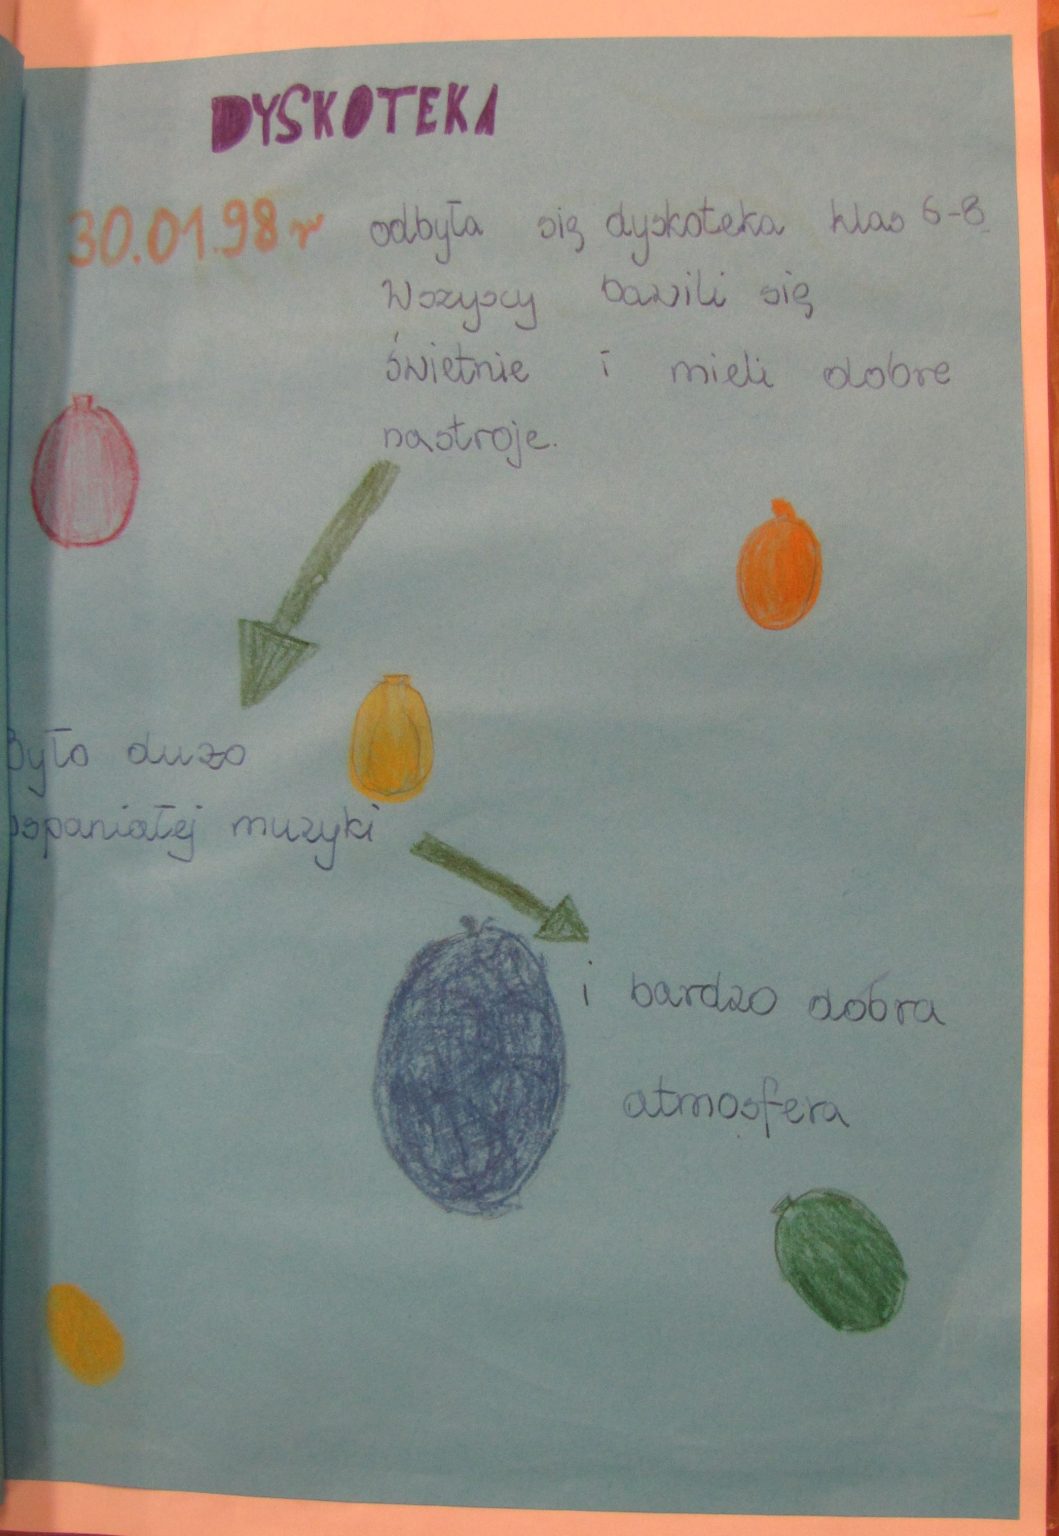 DYSKOTEKA
30.01.98r odbyła się dyskoteka klas 6-8.
Wszyscy bawili się
świetnie i mieli dobre
nastroje.
Było dużo
wspaniałej muzyki
i bardzo dobra
atmosfera